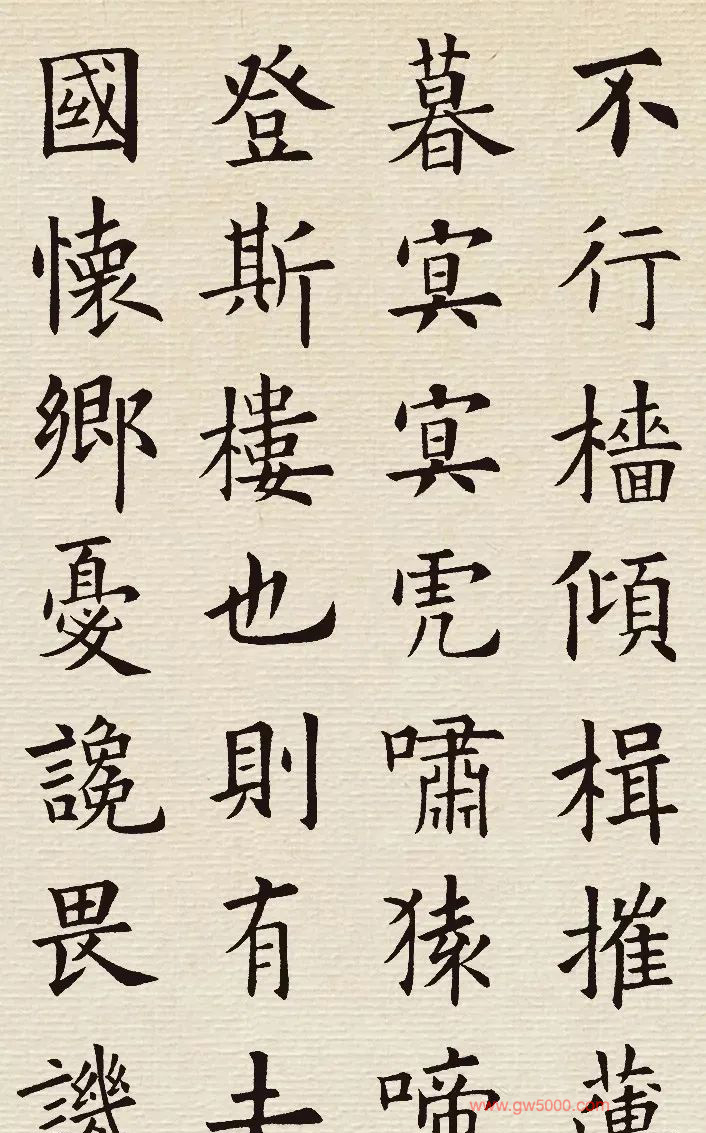 不行檣傾楫摧薄
暮冥冥虎嘯猿啼
登斯樓也則有去
國懷鄉憂讒畏譏
www.gw5000.com